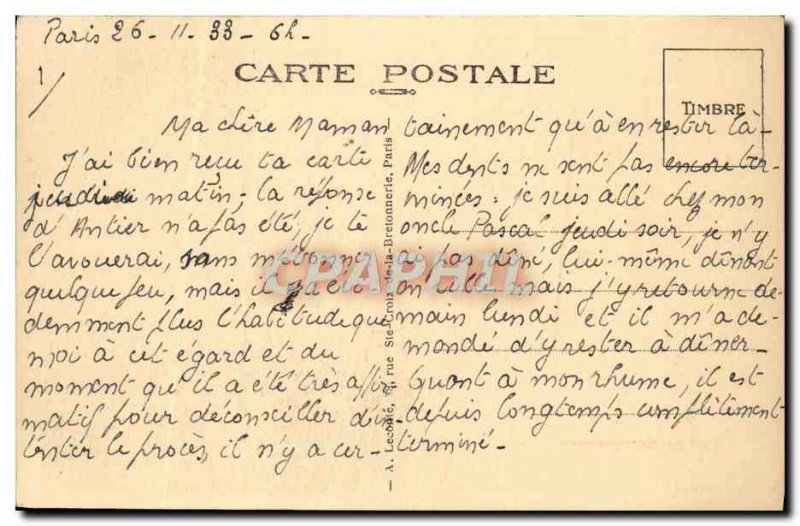 Paris 26 - 11 - 33 - 6h -
1/
CARTE POSTALE
TIMBRE
Ma chère Maman
J'ai bien reçu ta carte
jeudi matin ; la réponse
d'Antier n'a pas été, je te
l'avouerai, sans m'étonner
quelque peu, mais il a
demment plus l'habitude que
moi à cet égard et du
moment qu'il a été très affir
matif pour déconseiller d'in-
tenter le procès, il n'y a cer-
tainement qu'à en rester là -
Mes dents ne sont pas encore ter-
minées : je suis allé chez mon
oncle Pascal jeudi soir, je n'y
ai pas dîné, lui-même dînant
en ville mais j'y retourne de-
main lundi et il m'a de-
mandé d'y rester à dîner -
Quant à mon rhume, il est
depuis longtemps complètement
terminé -
— A. Leconte, rue Ste-Croix-de-la-Bretonnerie, Paris
CPAPHIL